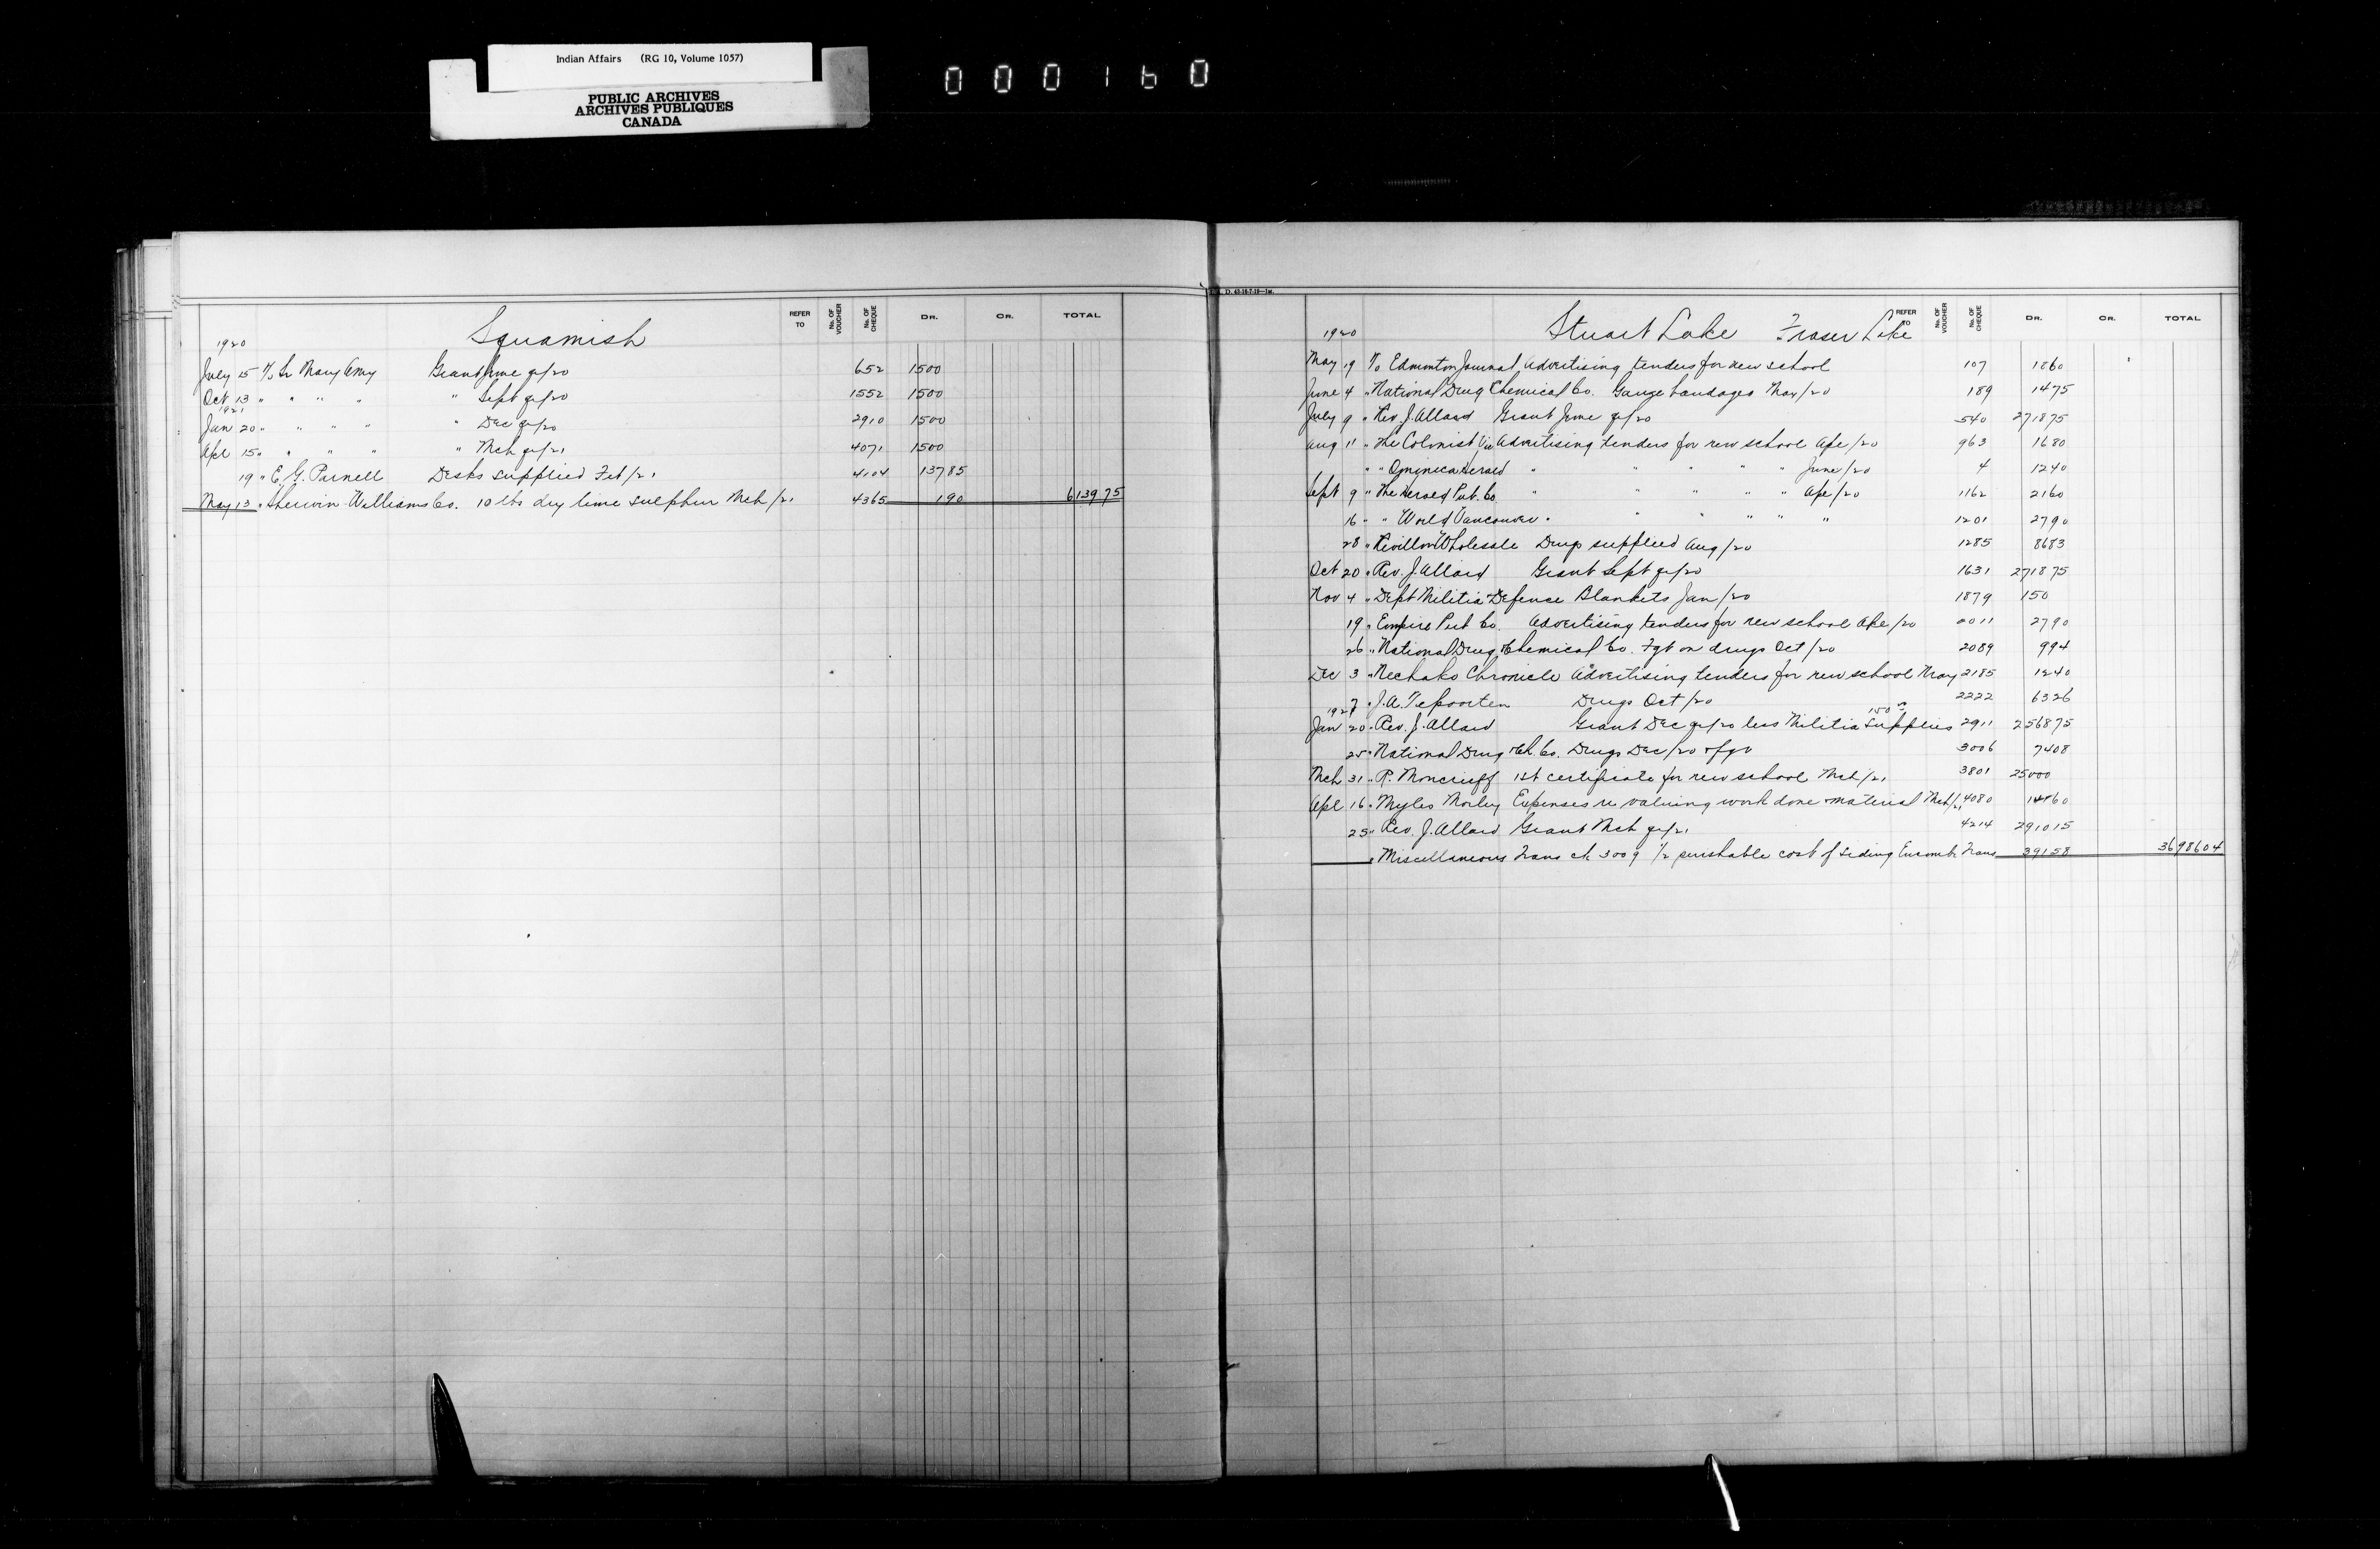 Indian Affairs (RG 10, Volume 1057)
PUBLIC ARCHIVES
ARCHIVES PUBLIQUES
CANADA
000160
Squamish
REFER TO No. OF VOUCHER No. OF CHEQUE DR. CR. TOTAL
1920
July 15 To Sr Mary Amy Grant June qr/20 652 1500
Oct 13 " " " " " Sept qr/20 1552 1500
1921
Jan 20 " " " " " Dec qr/20 2910 1500
Apl 15 " " " " " Mch qr/21 4071 1500
19 " E. G. Parnell Desks supplied Feb/21 4104 13785
May 13 " Sherwin-Williams Co. 10 lbs dry lime sulphur Mch/21 4365 190 613975
Stuart Lake Fraser Lake
REFER TO No. OF VOUCHER No. OF CHEQUE DR. CR. TOTAL
1920
May 19 To Edmonton Journal Advertising tenders for new school 107 1860
June 4 " National Drug Chemical Co. Gauze bandages May/20 189 1475
July 9 " Rev J. Allard Grant June qr/20 540 271875
Aug 11 " The Colonist Vic Advertising tenders for new school Apl/20 963 1680
" " Omineca Herald " " " " " June/20 4 1240
Sept 9 " The Herald Pub. Co. " " " " " Apl/20 1162 2160
16 " " World Vancouver " " " " " " 1201 2790
28 " Revillon Wholesale Drugs supplied Aug/20 1285 8683
Oct 20 " Rev. J. Allard Grant Sept qr/20 1631 271875
Nov 4 " Dept Militia Defence Blankets Jan/20 1879 150
19 " Empire Pub Co. Advertising tenders for new school Apl/20 2790
26 " National Drug & Chemical Co. Fgt on drugs Oct/20 2089 994
Dec 3 " Nechako Chronicle Advertising tenders for new school May 2185 1240
7 " J. A. Tepoorten Drugs Oct/20 2222 6326
1921 150
Jan 20 " Rev. J. Allard Grant Dec qr/20 less Militia supplies 2911 256875
25 " National Drug & Ch. Co. Drugs Dec/20 3006 7408
Mch 31 " R. Moncrieff 1st certificate for new school Mch/21 3801
Apl 16 " Myles Morley Expenses re valuing work done & material Mch/21 4080
25 " Rev. J. Allard Grant Mch qr/21 4214 291015
" Miscellaneous Trans ch 3009 1/2 perishable cost of siding Trans 39158 3698604